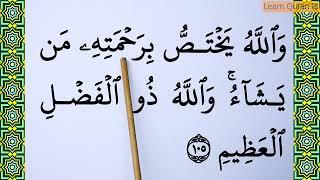 Learn Quran
وَٱللَّهُ يَخۡتَصُّ بِرَحۡمَتِهِۦ مَن
يَشَآءُۚ وَٱللَّهُ ذُو ٱلۡفَضۡلِ
ٱلۡعَظِيمِ ١٠٥